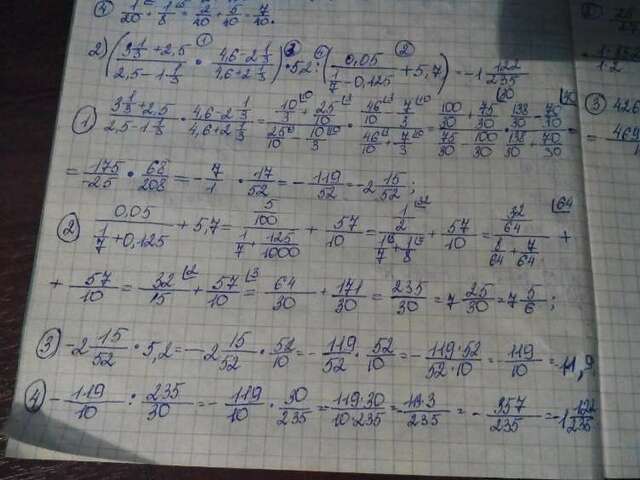 ④ 1/20 + 1/8 = 2/40 + 5/40 = 7/40.
2) ( (3 1/3 + 2,5)/(2,5 - 1 1/3) · (4,6 - 2 1/3)/(4,6 + 2 1/3) ) · 5,2 : ( 0,05/(1/7 - 0,125) + 5,7 ) = -1 122/235
① (3 1/3 + 2,5)/(2,5 - 1 1/3) · (4,6 - 2 1/3)/(4,6 + 2 1/3) = (10/3 + 25/10)/(25/10 - 10/3) · (46/10 - 7/3)/(46/10 + 7/3) = (100/30 + 75/30)/(75/30 - 100/30) · (138/30 - 70/30)/(138/30 + 70/30) =
= 175/-25 · 68/208 = - 7/1 · 17/52 = - 119/52 = -2 15/52;
② 0,05/(1/7 + 0,125) + 5,7 = (5/100)/(1/7 + 125/1000) + 57/10 = (1/2)/(1/7 + 1/8) + 57/10 = (32/64)/(8/64 + 7/64) +
+ 57/10 = 32/15 + 57/10 = 64/30 + 171/30 = 235/30 = 7 25/30 = 7 5/6;
③ -2 15/52 · 5,2 = -2 15/52 · 52/10 = - 119/52 · 52/10 = - 119·52/52·10 = - 119/10 = -11,9
④ - 119/10 : 235/30 = - 119/10 · 30/235 = 119·30/10·235 = - 357/235 = -1 122/235
③ 426